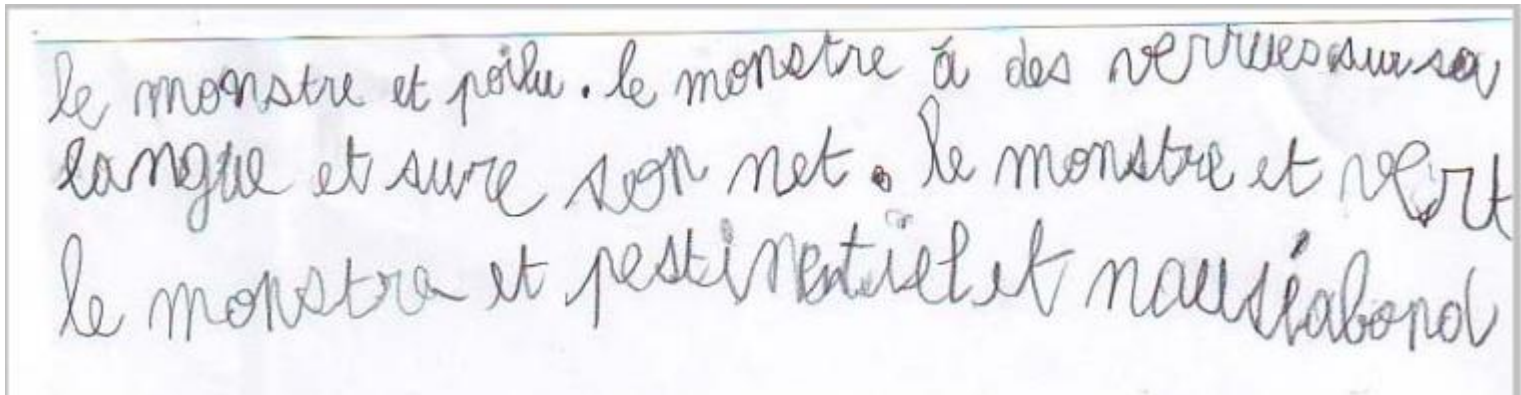 le monstre et poilu. le monstre à des verrues sur sa
langue et sure son net. le monstre et vert
le monstre et pestinentiel et nauséabond